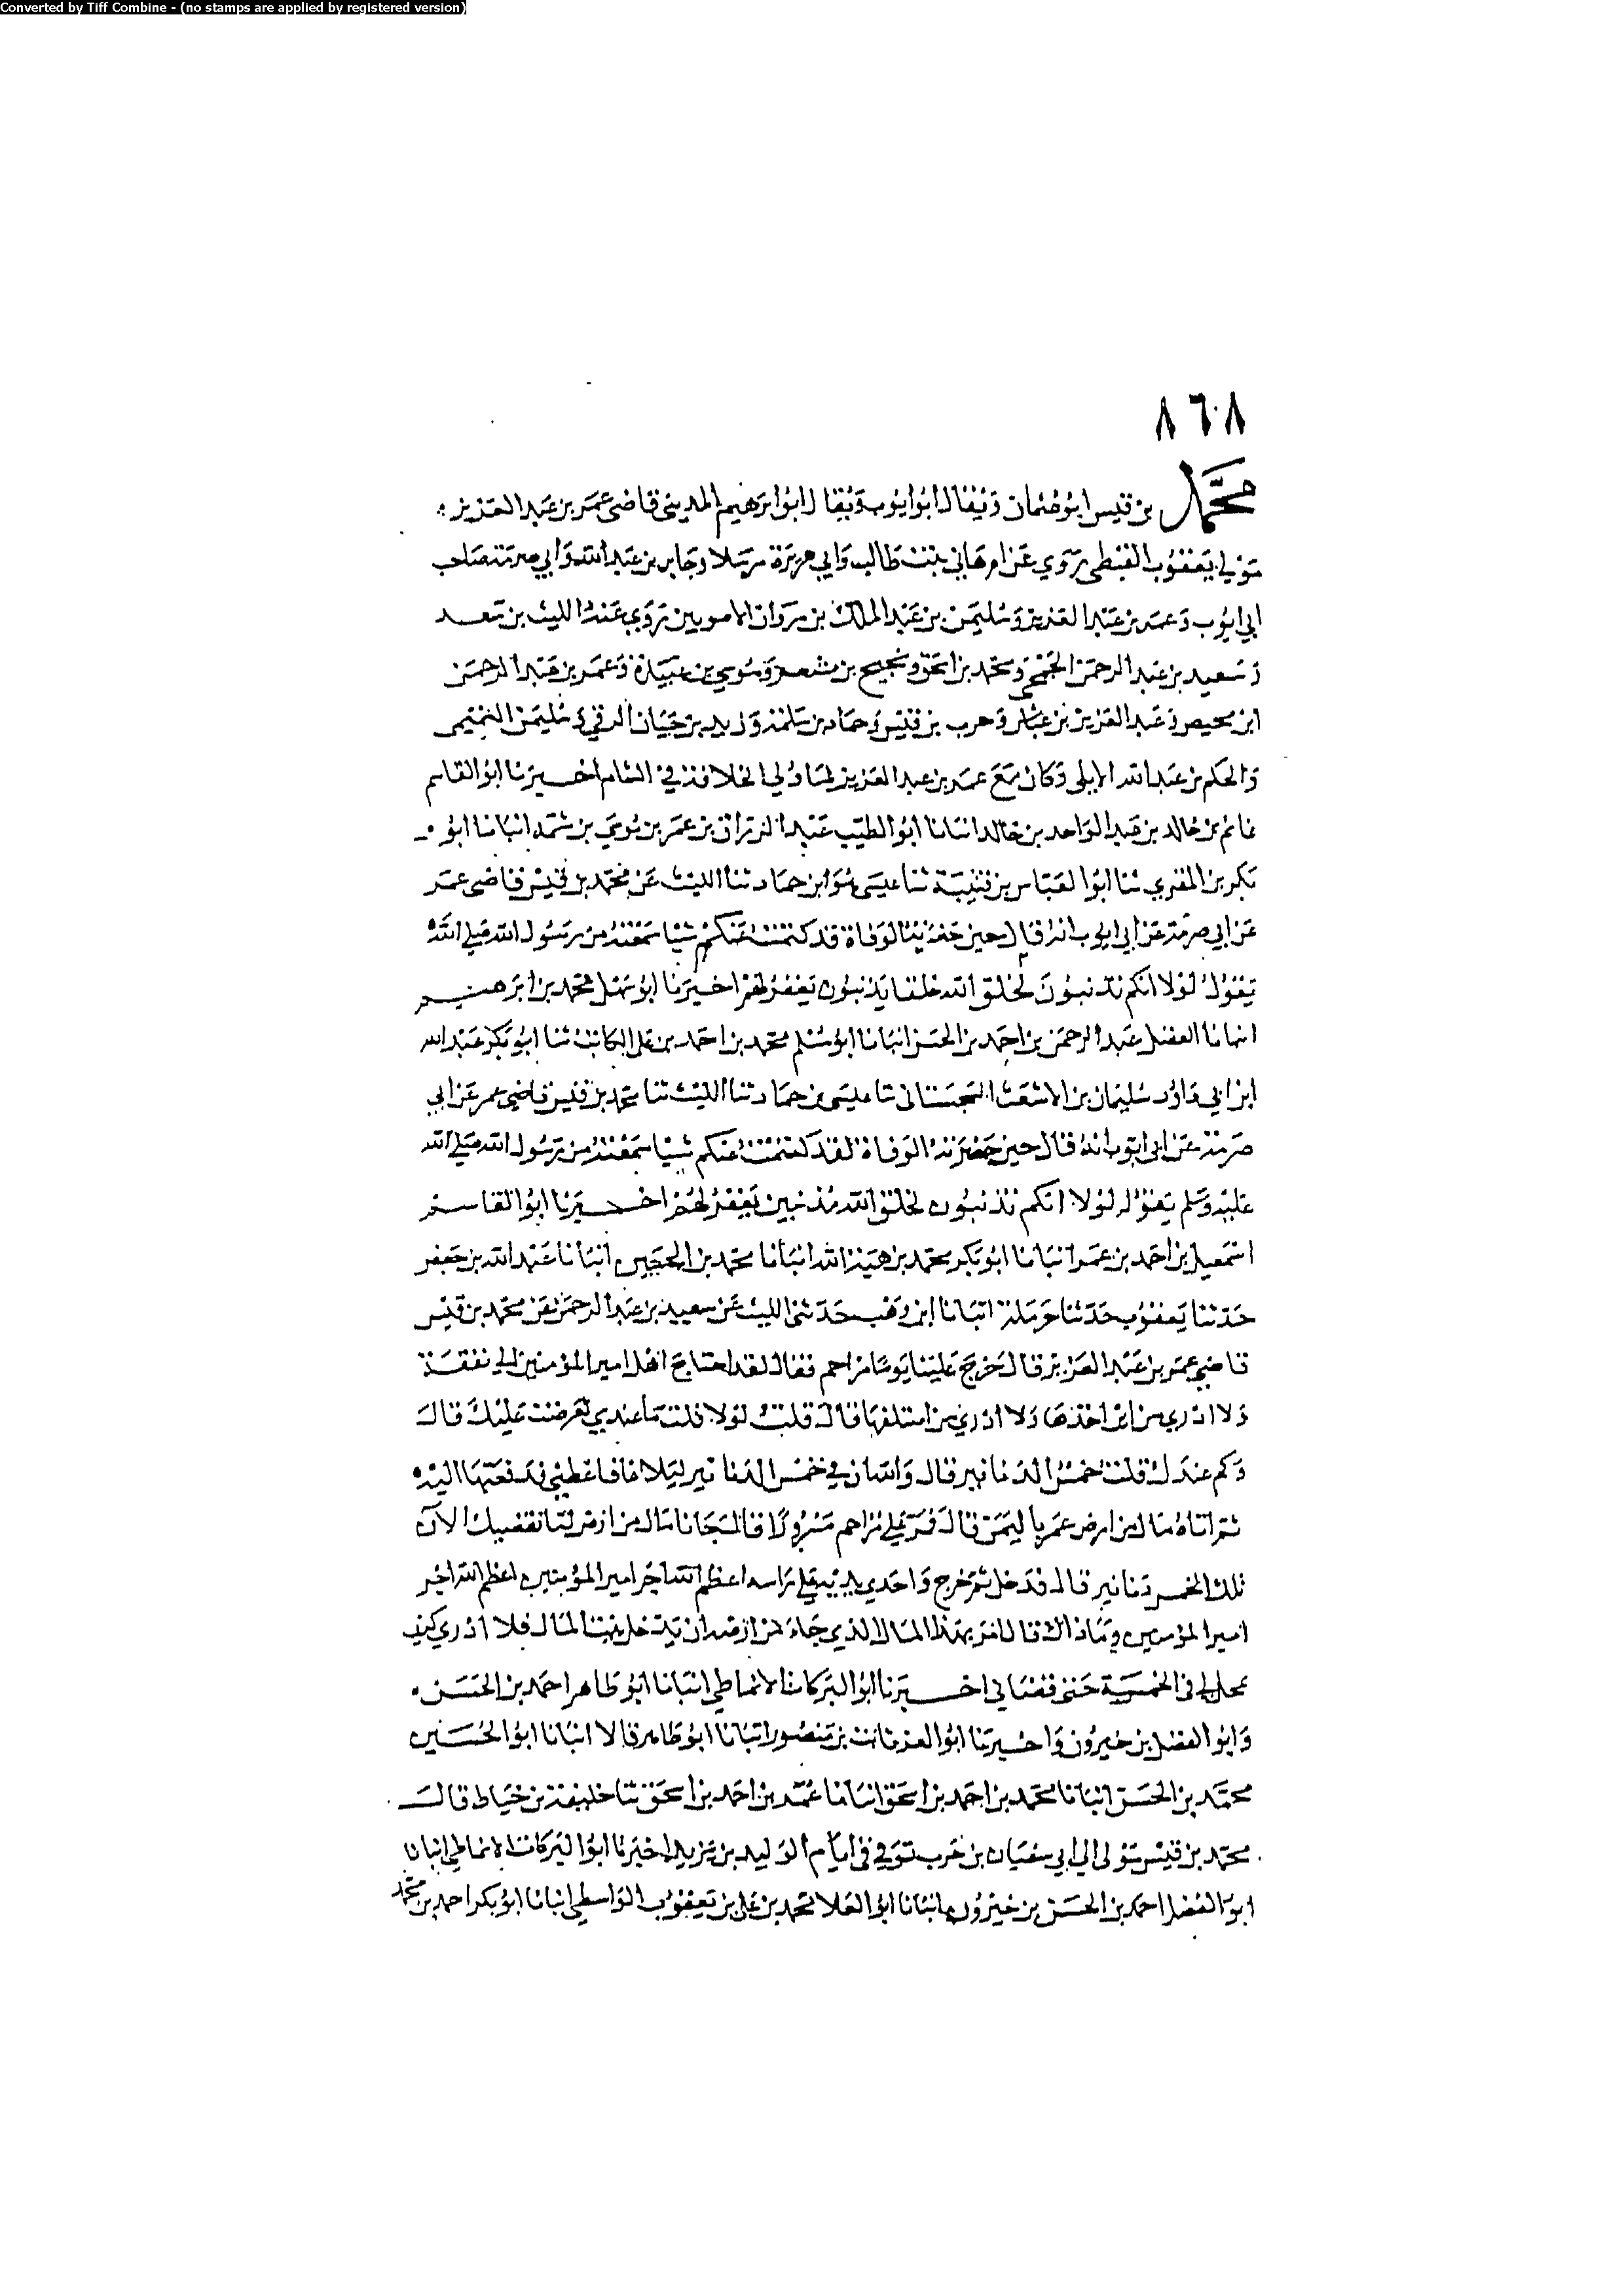 Converted by Tiff Combine - (no stamps are applied by registered version)
٨٦٨
محمد بن قيس ابو عثمان ويقال ابو ايوب ويقال ابو ابرهيم المديني قاضي عمر بن عبد العزيز
مولى يعقوب القبطي روي عن ام هاني بنت طالب وابي هريرة مرسلا وجابر بن عبد الله وابي صرمة صاحب
ابي ايوب وعمر بن عبد العزيز وسليمن بن عبد الملك بن مروان الامويين روي عنه الليث بن سعد
وسعيد بن عبد الرحمن الجمحي ومحمد بن اسحق ونجيح بن معشر وموسي بن عبيدة وعمر بن عبد الرحمن
ابن محيصن وعبد العزيز بن عياش وحرب بن قيس وحماد بن سلمة وزيد بن حيان الرقي وسليمن التيمي
والحكم بن عبد الله الايلي وكان مع عمر بن عبد العزيز لما ولي الخلافة في الشام اخبرنا ابو القاسم
غانم بن خالد بن عبد الواحد بن خالد انبانا ابو الطيب عبد الرزاق بن عمر بن موسي بن شمه انبانا ابو
بكر بن المقري ثنا ابو العباس بن قتيبة ثنا عيسى هو ابن حماد ثنا الليث عن محمد بن قيس قاضي عمر
عن ابي صرمة عن ابي ايوب انه قال حين حضرته الوفاة قد كتمت عنكم شيا سمعته من رسول الله صلي الله
يقول لولا انكم تذنبون لخلق الله خلقا يذنبون يغفر لهم اخبرنا ابو سهل محمد بن ابرهيم
انبانا الفضل عبد الرحمن بن احمد بن الحسن انبانا ابو مسلم محمد بن احمد بن علي الكاتب ثنا ابو بكر عبد الله
ابن ابي داود سليمان بن الاشعث السجستاني ثنا عيسى بن حماد ثنا الليث ثنا محمد بن قيس قاضي عمر عن ابي
صرمة عن ابي ايوب انه قال حين حضرته الوفاة لقد كتمت عنكم شيا سمعته من رسول الله صلي الله
عليه وسلم يقول لولا انكم تذنبون لخلق الله مذنبين يغفر لهم اخبرنا ابو القاسم
اسمعيل بن احمد بن عمر انبانا ابو بكر محمد بن هبة الله انبانا محمد بن الحسين انبانا عبد الله بن جعفر
حدثنا يعقوب حدثنا حرملة انبانا ابن وهب حدثني الليث عن سعيد بن عبد الرحمن عن محمد بن قيس
قاضي عمر بن عبد العزيز قال خرج علينا يوما مزاحم فقال لقد احتاج اهل امير المؤمنين الي نفقة
ولا ادري من اين اخذها ولا ادري من استلفها قال قلت لولا قلت ما عندي لعرضت عليك قال
وكم عندك قلت خمس الدنانير قال والله ان في خمس الدنانير لبلاغا فاعطني فدفعتها اليه
ثم اتاه مال من ارض عمر باليمن قال فمر علي مزاحم مسرورا قال جانا مال من ارض لنا نقضيك الآن
تلك الخمس دنانير قال فدخل ثم خرج واحدي يديه علي راسه اعظم الله اجر امير المؤمنين اعظم الله اجر
امير المؤمنين وما ذاك قال امر بهذا المال الذي جاء من ارضه ان يدخل بيت المال فلا ادري كيف
احتال لي في الخمسة حتى قضاني اخبرنا ابو البركات الانماطي انبانا ابو طاهر احمد بن الحسن
وابو الفضل بن خيرون واخبرنا ابو العز ثابت بن منصور انبانا ابو طاهر قالا انبانا ابو الحسين
محمد بن الحسن انبانا محمد بن احمد بن اسحق انبانا عمر بن احمد بن اسحق ثنا خليفة بن خياط قال
محمد بن قيس مولى ال ابي سفيان بن حرب توفي في ايام الوليد بن يزيد اخبرنا ابو البركات الانماطي انبانا
ابو الفضل احمد بن الحسن بن خيرون انبانا ابو العلا محمد بن علي بن يعقوب الواسطي انبانا ابو بكر احمد بن محمد